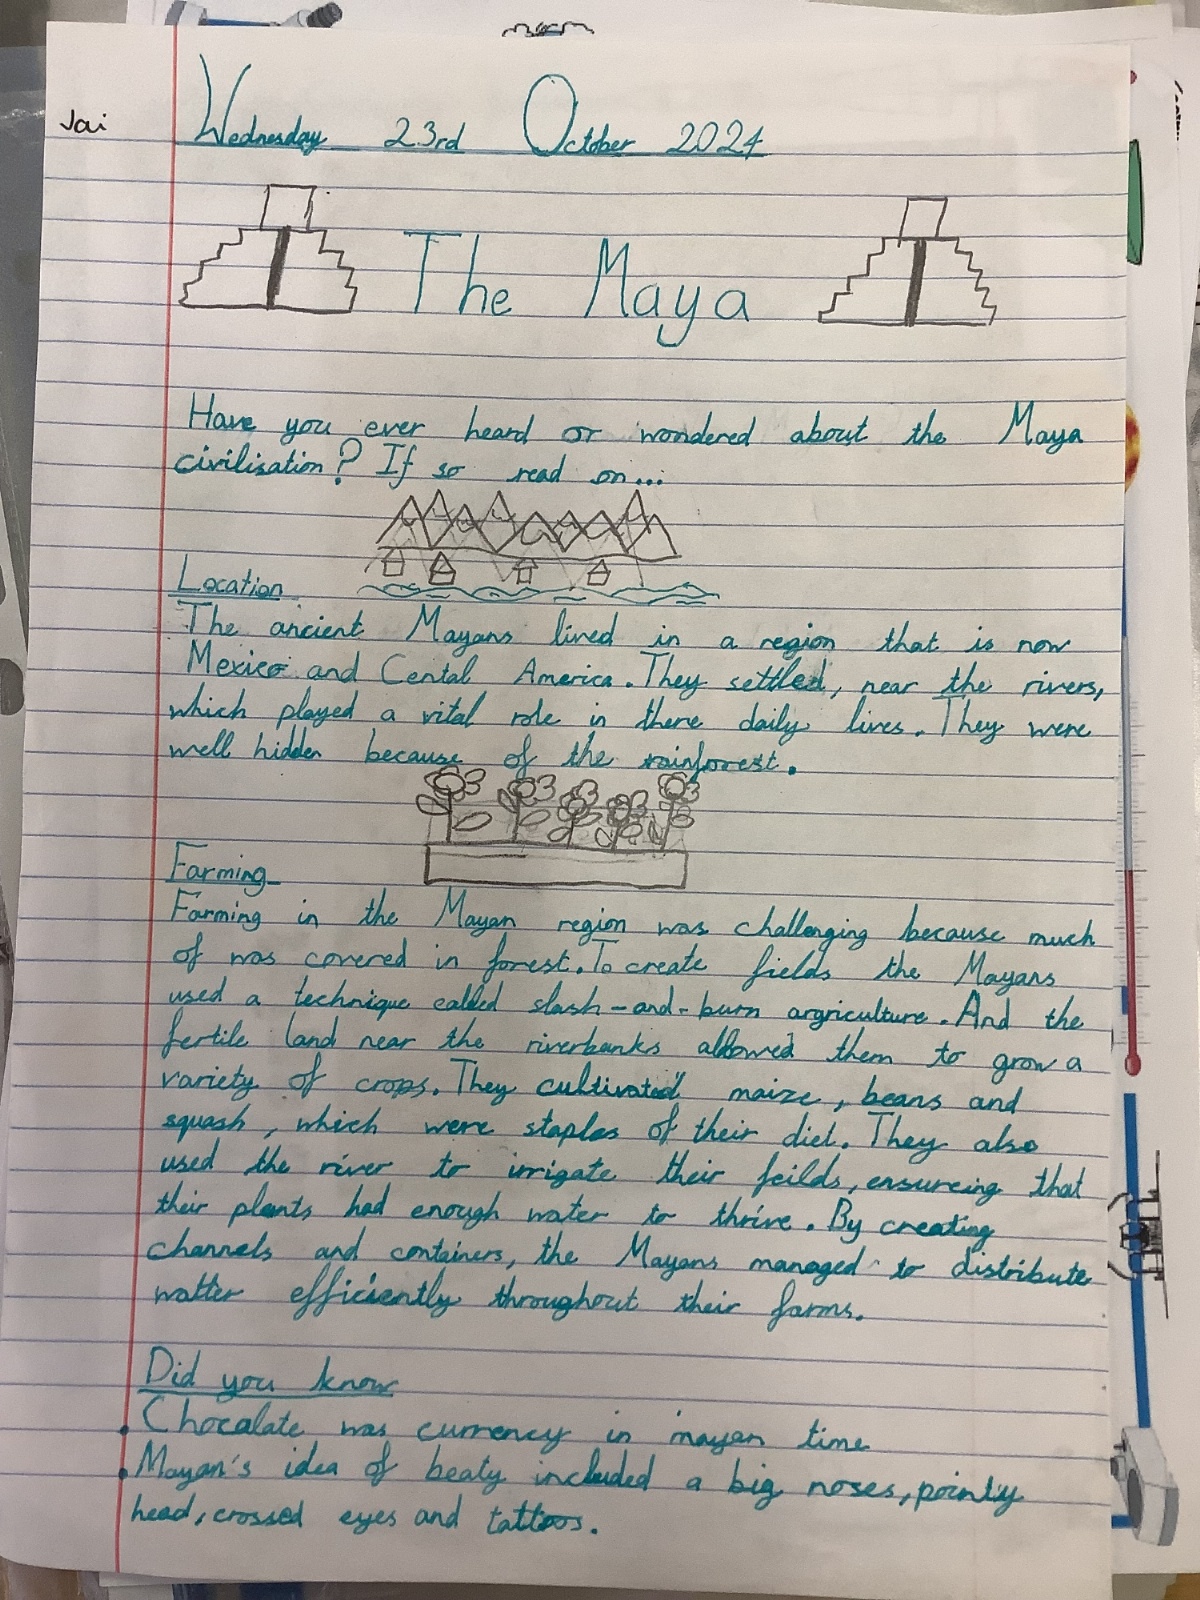 Jai
Wednesday 23rd October 2024
The Maya
Have you ever heard or wondered about the Maya
civilisation? If so read on...
Location
The ancient Mayans lived in a region that is now
Mexico and Cental America. They settled, near the rivers,
which played a vital role in there daily lives. They were
well hidden because of the rainforest.
Farming
Farming in the Mayan region was challenging because much
of was covered in forest. To create fields the Mayans
used a technique called slash-and-burn argriculture. And the
fertile land near the riverbanks allowed them to grow a
variety of crops. They cultivated maize, beans and
squash, which were staples of their diet. They also
used the river to irrigate their feilds, ensureing that
their plants had enough water to thrive. By creating
channels and containers, the Mayans managed to distribute
watter efficiently throughout their farms.
Did you know
• Chocalate was currency in mayan time
• Mayan's idea of beaty included a big noses, pointy
head, crossed eyes and tattoos.